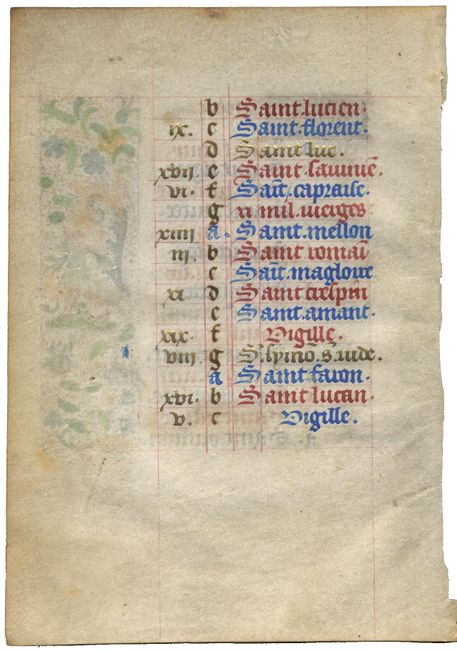 b Saint lucien.
ix. c Saint florent.
d Saint luc.
xvii e Saint sauuiē
vi. f Saīt. capraise.
g xi mil. uierges
xiiii a. Saint mellon
iii. b Saint romaī
c Saīt magloire
xi d Saint crespin
e Saint. amant.
xix. f Vigille.
viii g S. symō. s. iude.
a Saint faron.
xvi. b Saint lucan.
v. c Vigille.